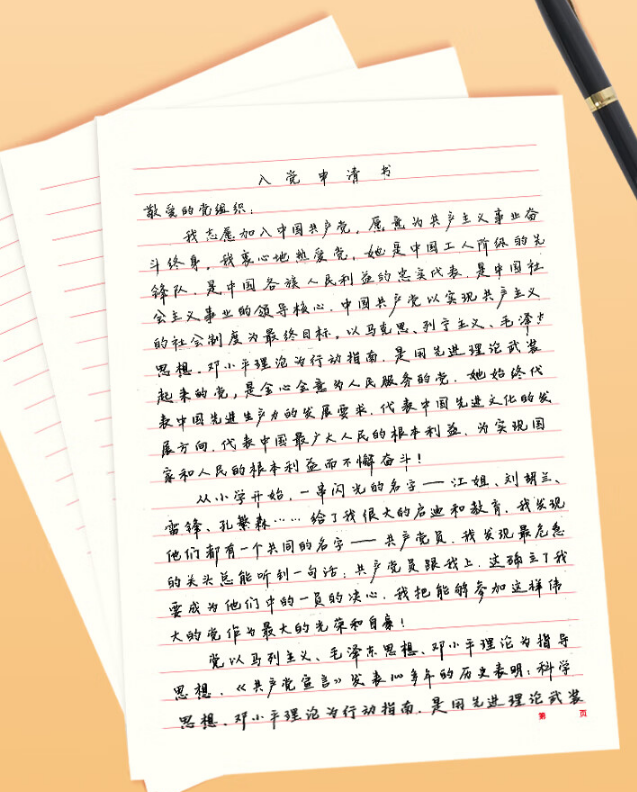 入党申请书
敬爱的党组织:
我志愿加入中国共产党,愿意为共产主义事业奋
斗终身。我衷心地热爱党,她是中国工人阶级的先
锋队,是中国各族人民利益的忠实代表,是中国社
会主义事业的领导核心。中国共产党以实现共产主义
的社会制度为最终目标。以马克思、列宁主义、毛泽东
思想、邓小平理论为行动指南,是用先进理论武装
起来的党,是全心全意为人民服务的党。她始终代
表中国先进生产力的发展要求,代表中国先进文化的发
展方向,代表中国最广大人民的根本利益,为实现国
家和人民的根本利益而不懈奋斗!
从小学开始,一串闪光的名字——江姐、刘胡兰、
雷锋、孔繁森……给了我很大的启迪和教育。我发现
他们都有一个共同的名字——共产党员,我发现最危急
的关头总能听到一句话:共产党员跟我上。这确立了我
要成为他们中的一员的决心。我把能够参加这样伟
大的党作为最大的光荣和自豪!
党以马列主义、毛泽东思想、邓小平理论为指导
思想。《共产党宣言》发表100多年的历史表明:科学
思想、邓小平理论为行动指南,是用先进理论武装
第 页